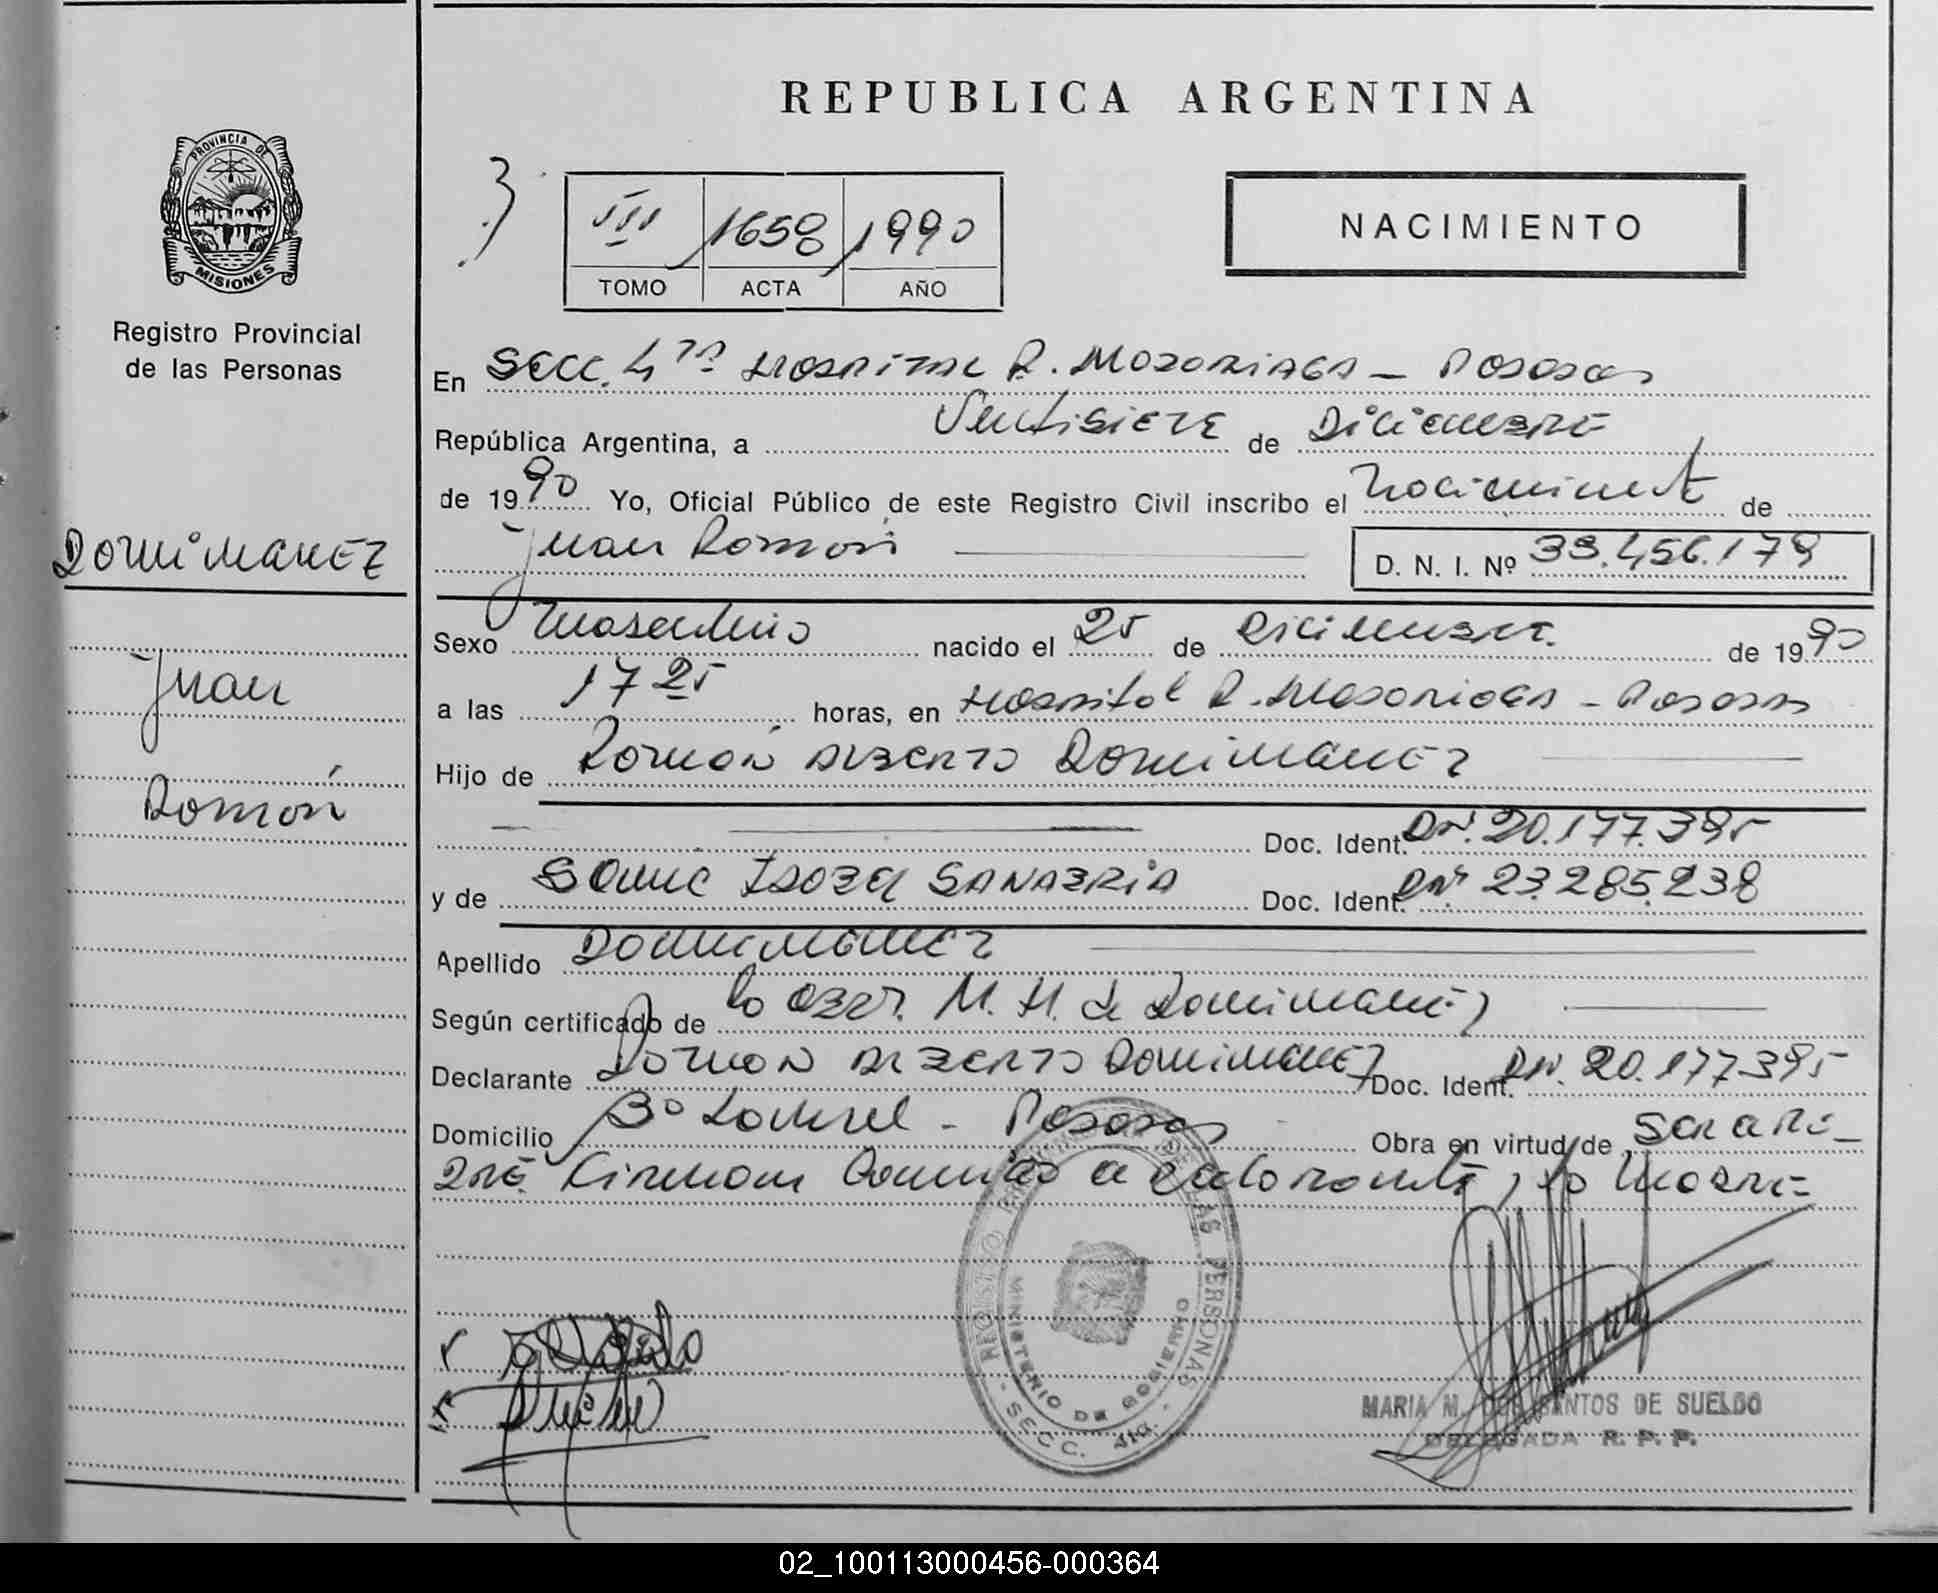 REPUBLICA ARGENTINA
PROVINCIA DE MISIONES
Registro Provincial
de las Personas
III 1658 1990
TOMO ACTA AÑO
NACIMIENTO
En Secc. 4ta Hospital R. Madariaga - Posadas
República Argentina, a Ventisiete de Diciembre
de 1990 Yo, Oficial Público de este Registro Civil inscribo el Nacimiento de
Juan Ramon D. N. I. Nº 33.456.178
Dominguez
Juan
Ramón
Sexo Masculino nacido el 25 de Diciembre de 1990
a las 17 25 horas, en Hospital R. Madariaga - Posadas
Hijo de Ramón Alberto Dominguez
Doc. Ident. DNI. 20.177.395
y de Isabel SANABRIA Doc. Ident. DNI 23.285.238
Apellido Dominguez
Según certificado de la Obst. M. H. de Dominguez
Declarante Ramon Alberto Dominguez Doc. Ident. DNI. 20.177.395
Domicilio Bº - Posadas Obra en virtud de ser el Pa-
dre. Firman el declarante, la Madre
REGISTRO PROVINCIAL DE LAS PERSONAS
MINISTERIO DE GOBIERNO
- SECC. 4ta. -
MARIA M. DOS SANTOS DE SUELDO
DELEGADA R. P. P.
02_100113000456-000364